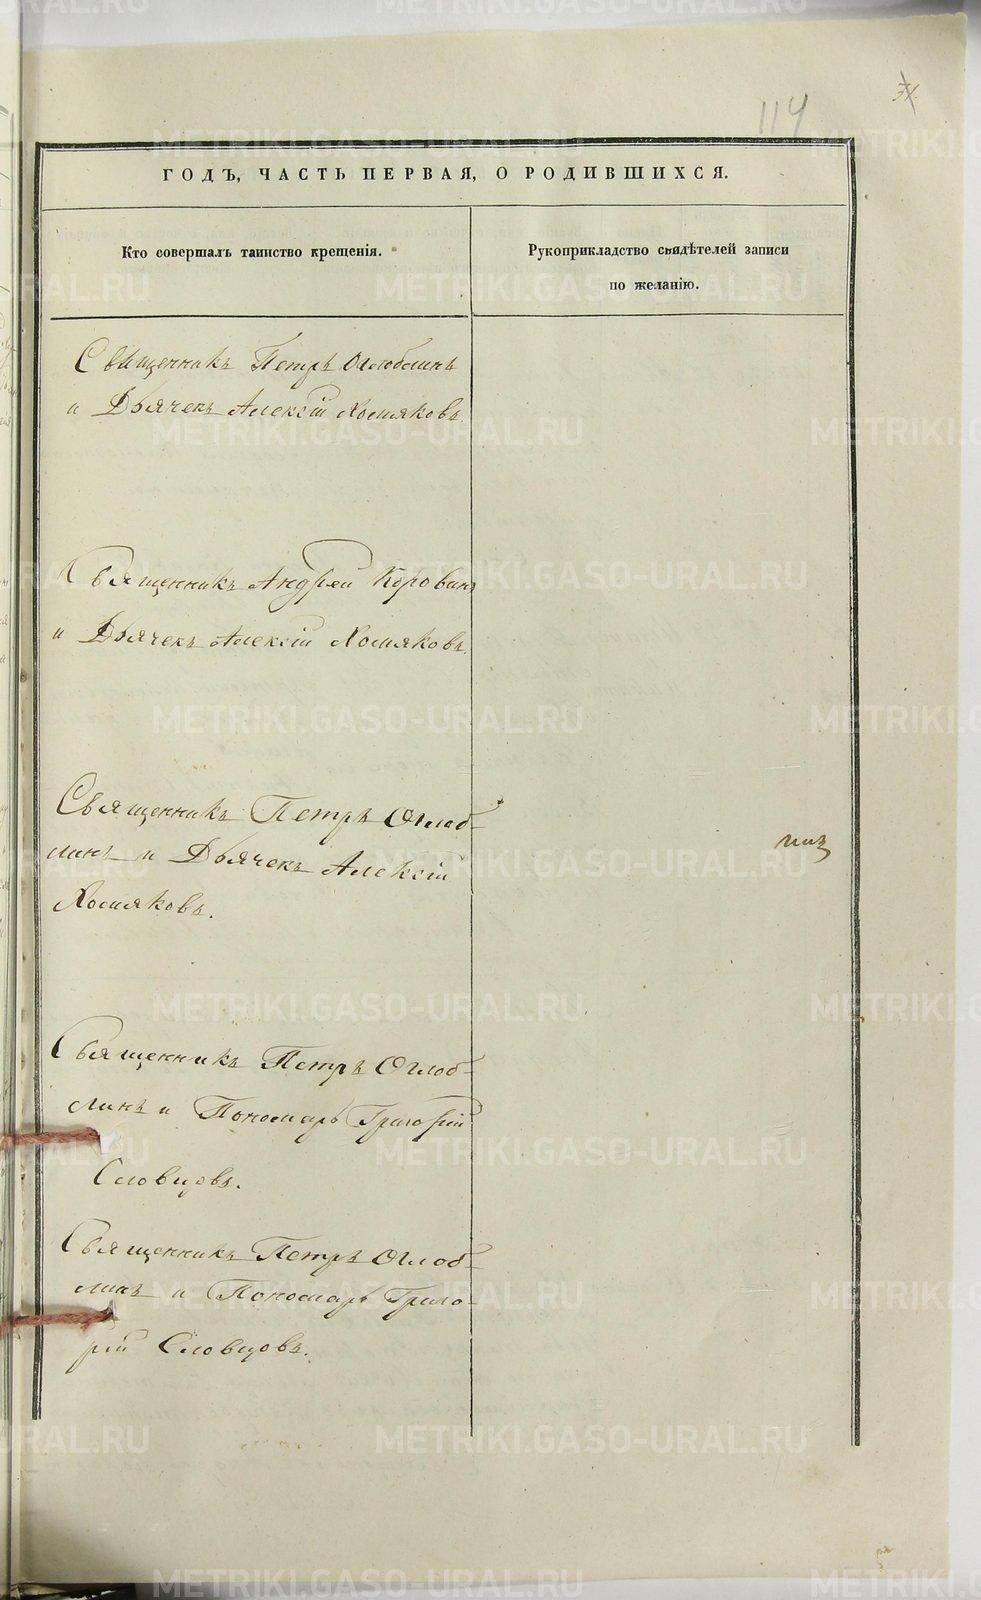 114
ГОДЪ, ЧАСТЬ ПЕРВАЯ, О РОДИВШИХСЯ.
Кто совершалъ таинство крещенія.
Рукоприкладство свидѣтелей записи
по желанію.
Священникъ Петръ Оглоблинъ
и Дьячекъ Алексій Хомяковъ.
Священникъ Андрей Коровинъ
и Дьячекъ Алексій Хомяковъ.
Священникъ Петръ Оглоб-
линъ и Дьячекъ Алексій
Хомяковъ.
Священникъ Петръ Оглоб-
линъ и Пономарь Григорій
Словцовъ.
Священникъ Петръ Оглоб-
линъ и Пономарь Григо-
рій Словцовъ.
METRIKI.GASO-URAL.RU